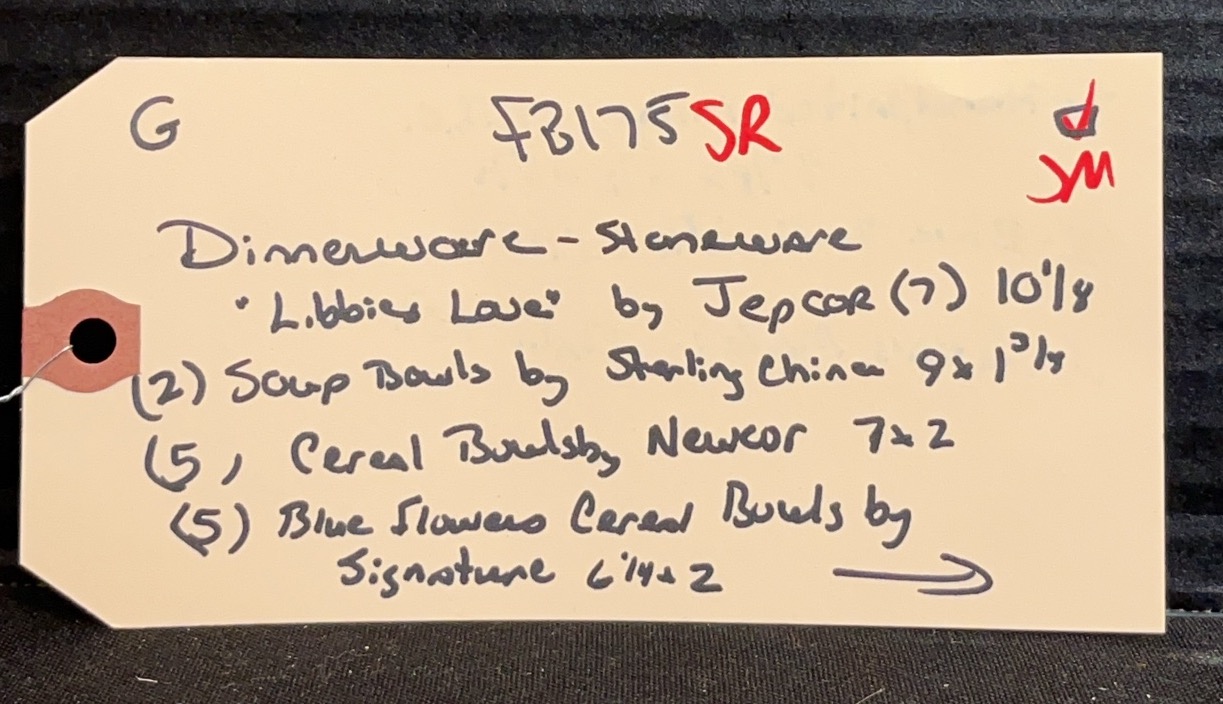 G FB175 SR
JM
Dinnerware - Stoneware
"Libbies Love" by Jepcor (7) 10 1/8
(2) Soup Bowls by Sterling China 9 x 1 3/4
(5) Cereal Bowls by Newcor 7 x 2
(5) Blue Flowers Cereal Bowls by
Signature 6 1/4 x 2 →